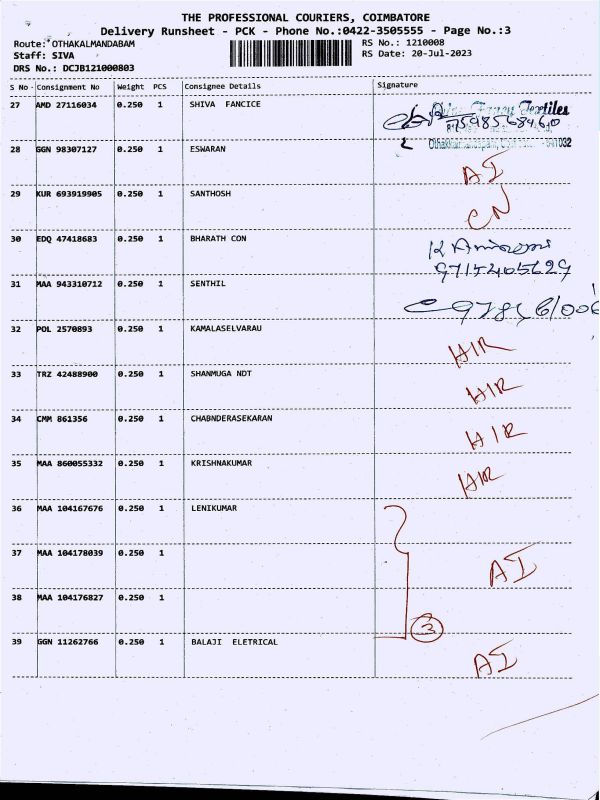 THE PROFESSIONAL COURIERS, COIMBATORE
Delivery Runsheet - PCK - Phone No.:0422-3505555 - Page No.:3
Route: OTHAKALMANDABAM RS No.: 1210008
Staff: SIVA RS Date: 20-Jul-2023
DRS No.: DCJB121000803
S No Consignment No Weight PCS Consignee Details Signature
27 AMD 27116034 0.250 1 SHIVA FANCICE
Textiles
28 GGN 98307127 0.250 1 ESWARAN
AI
29 KUR 693919905 0.250 1 SANTHOSH
CN
30 EDQ 47418683 0.250 1 BHARATH CON
9715405629
31 MAA 943310712 0.250 1 SENTHIL
32 POL 2570893 0.250 1 KAMALASELVARAU
HIR
33 TRZ 42488900 0.250 1 SHANMUGA NDT
HIR
34 CMM 861356 0.250 1 CHABNDERASEKARAN
HIR
35 MAA 860055332 0.250 1 KRISHNAKUMAR
HIR
36 MAA 104167676 0.250 1 LENIKUMAR
37 MAA 104178039 0.250 1
AI
38 MAA 104176827 0.250 1
3
39 GGN 11262766 0.250 1 BALAJI ELETRICAL
AI